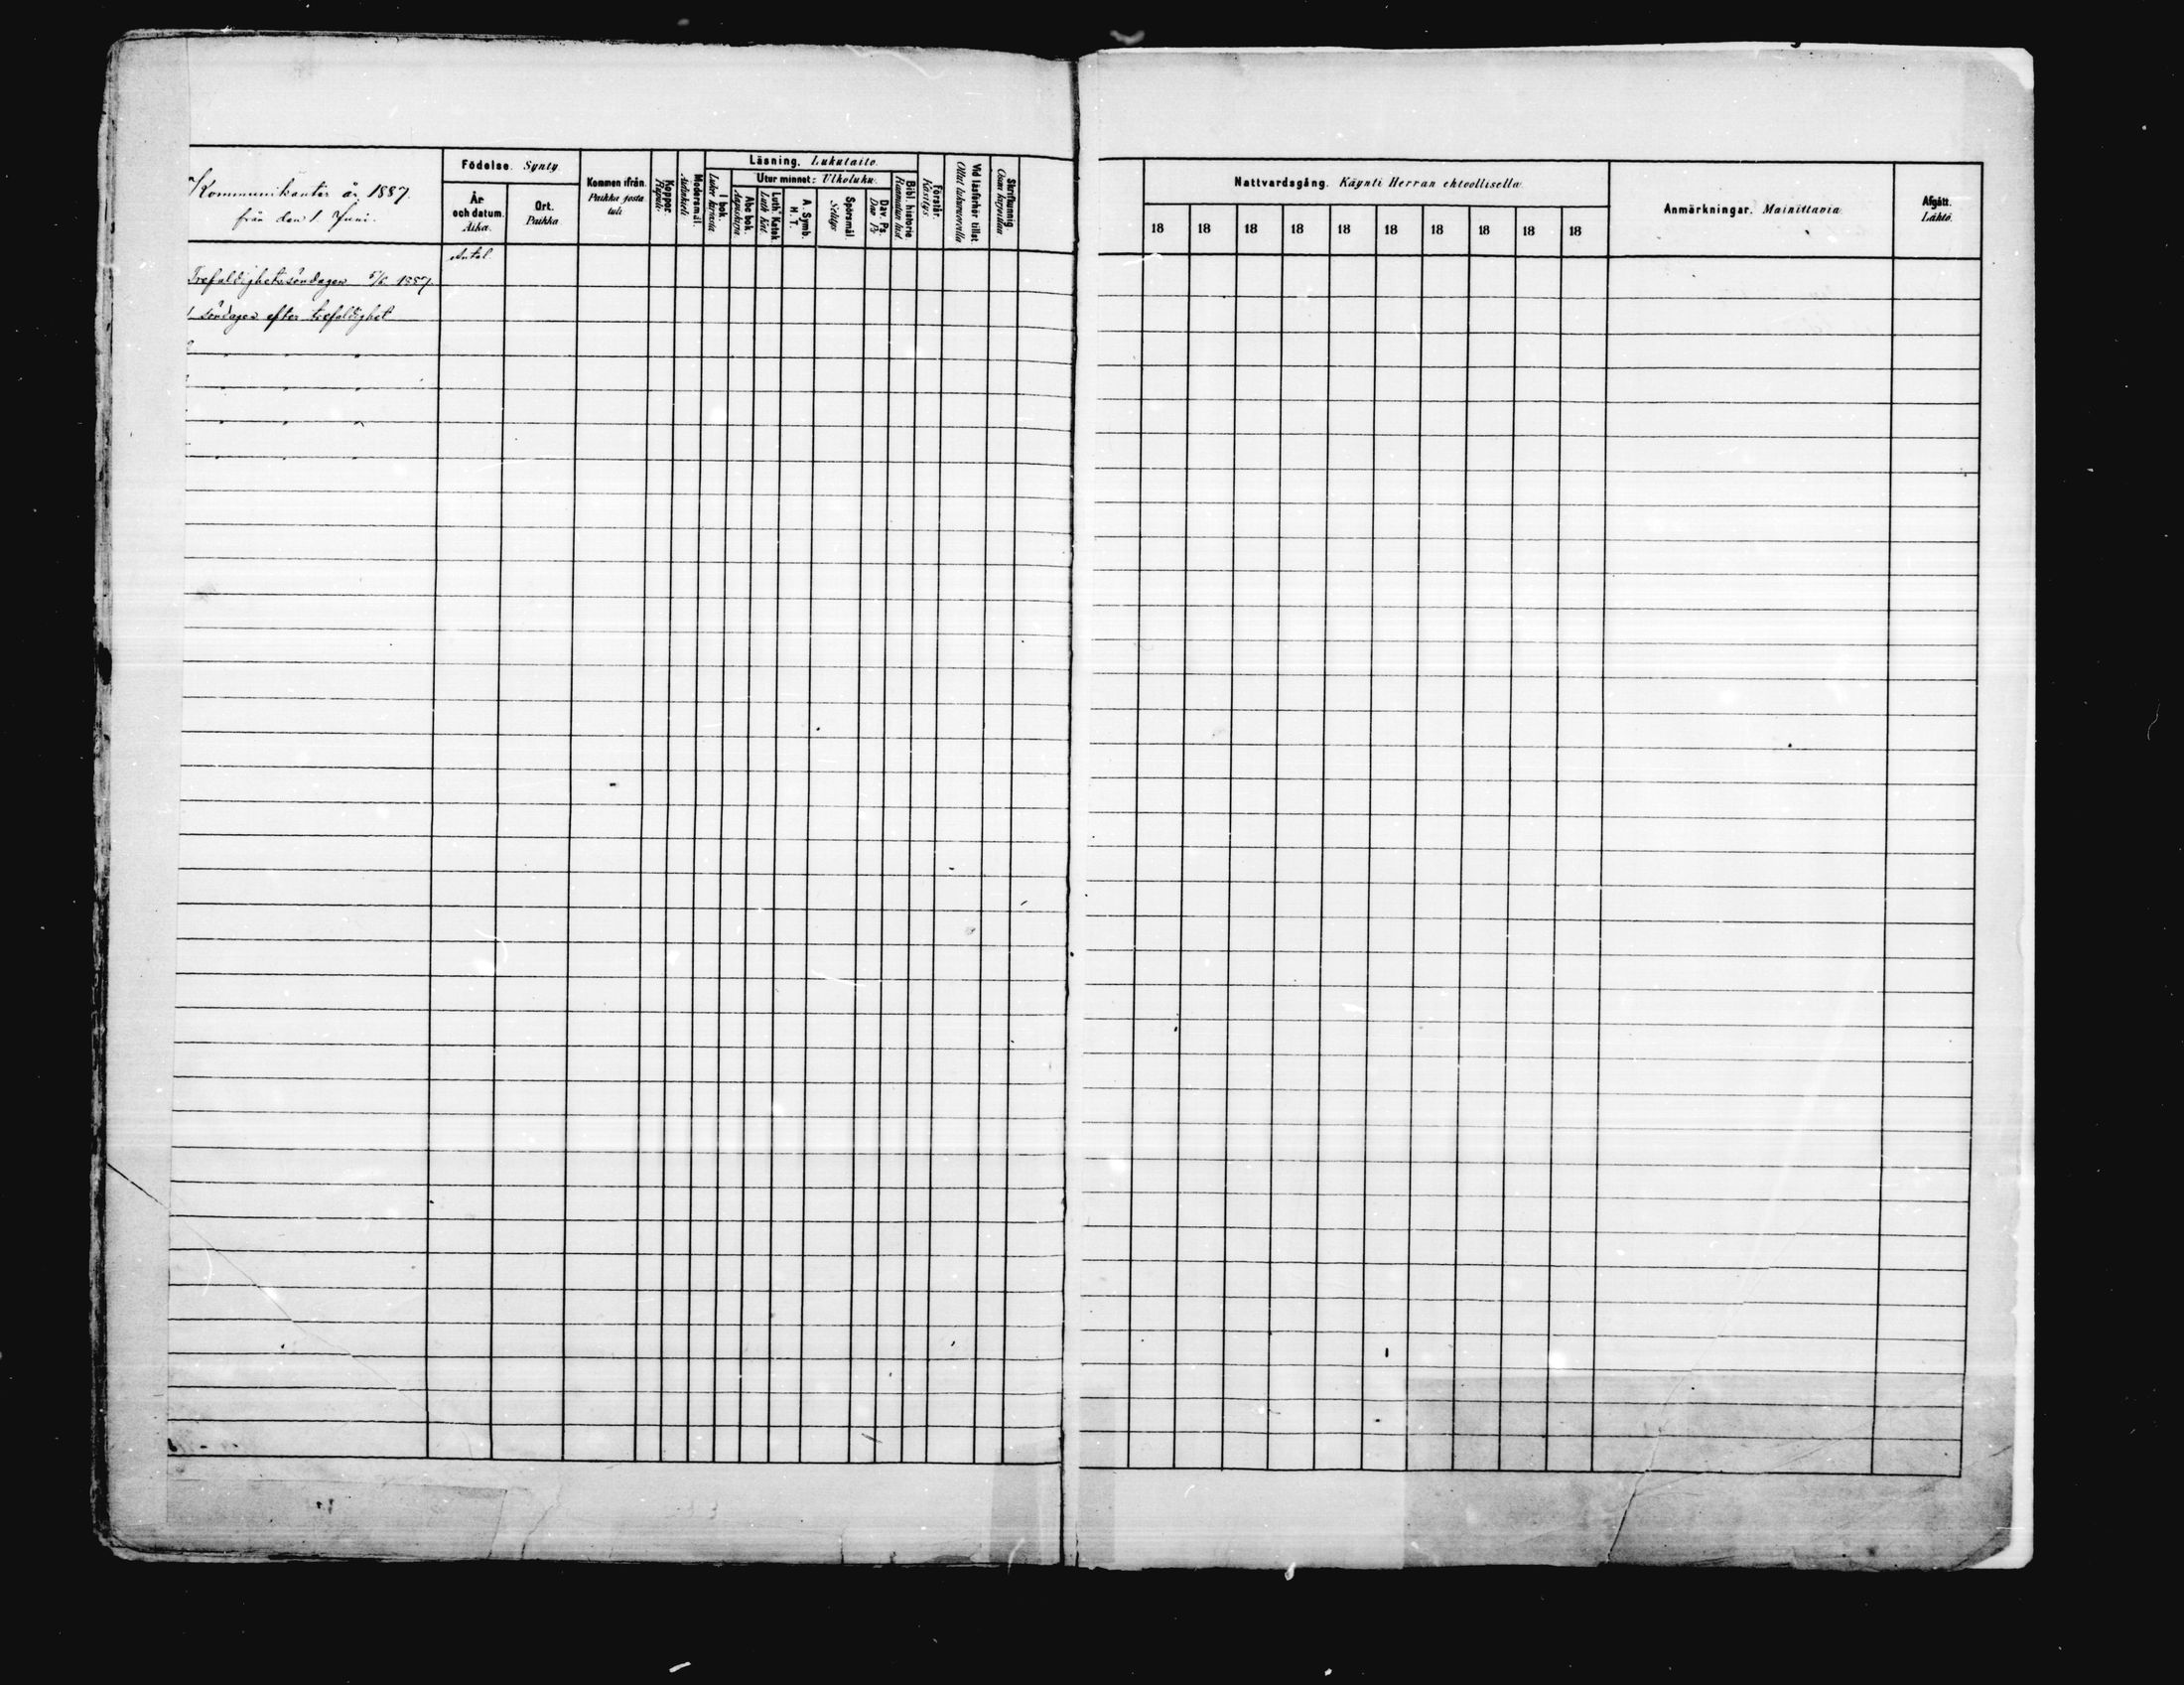 Kommunikanter år 1887.
från den 1. Juni.
Födelse. Synty
År och datum. Aika.
Ort. Paikka
Kommen ifrån. Paikka josta tuli
Koppor. Rupuli
Modersmål. Äidinkieli
Läsning. Lukutaito.
I bok. Lukee kirjasta
Utur minnet: Ulkoluku.
Abc bok. Aapiskirja
Luth. Katek. Luth Kat.
A. Symb. H. T.
Spörsmål. Selitys
Dav. Ps. Daw Ps
Bibl. historie. Raamatun hist.
Förstår. Käsitys
Vid läsförhör tillst. Ollut lukuwuorolla
Skrifkunnig. Osaa kirjoittaa
Nattvardsgång. Käynti Herran ehtoollisella
18 18 18 18 18 18 18 18 18 18
Anmärkningar. Mainittavia
Afgått. Lähtö.
Antal
Trefaldighetssöndagen 5/6 1887.
1 söndagen efter trefaldighet
" " "
" " "
" " "
" " "